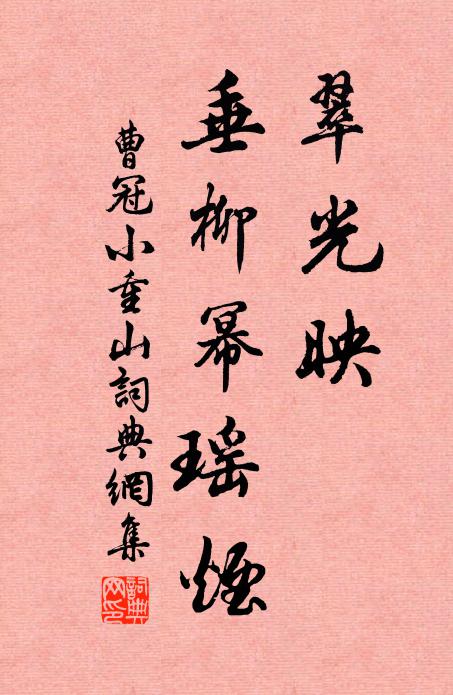 翠光映
垂柳幂瑶煙
曹冠小重山詞典網集
詞典
網